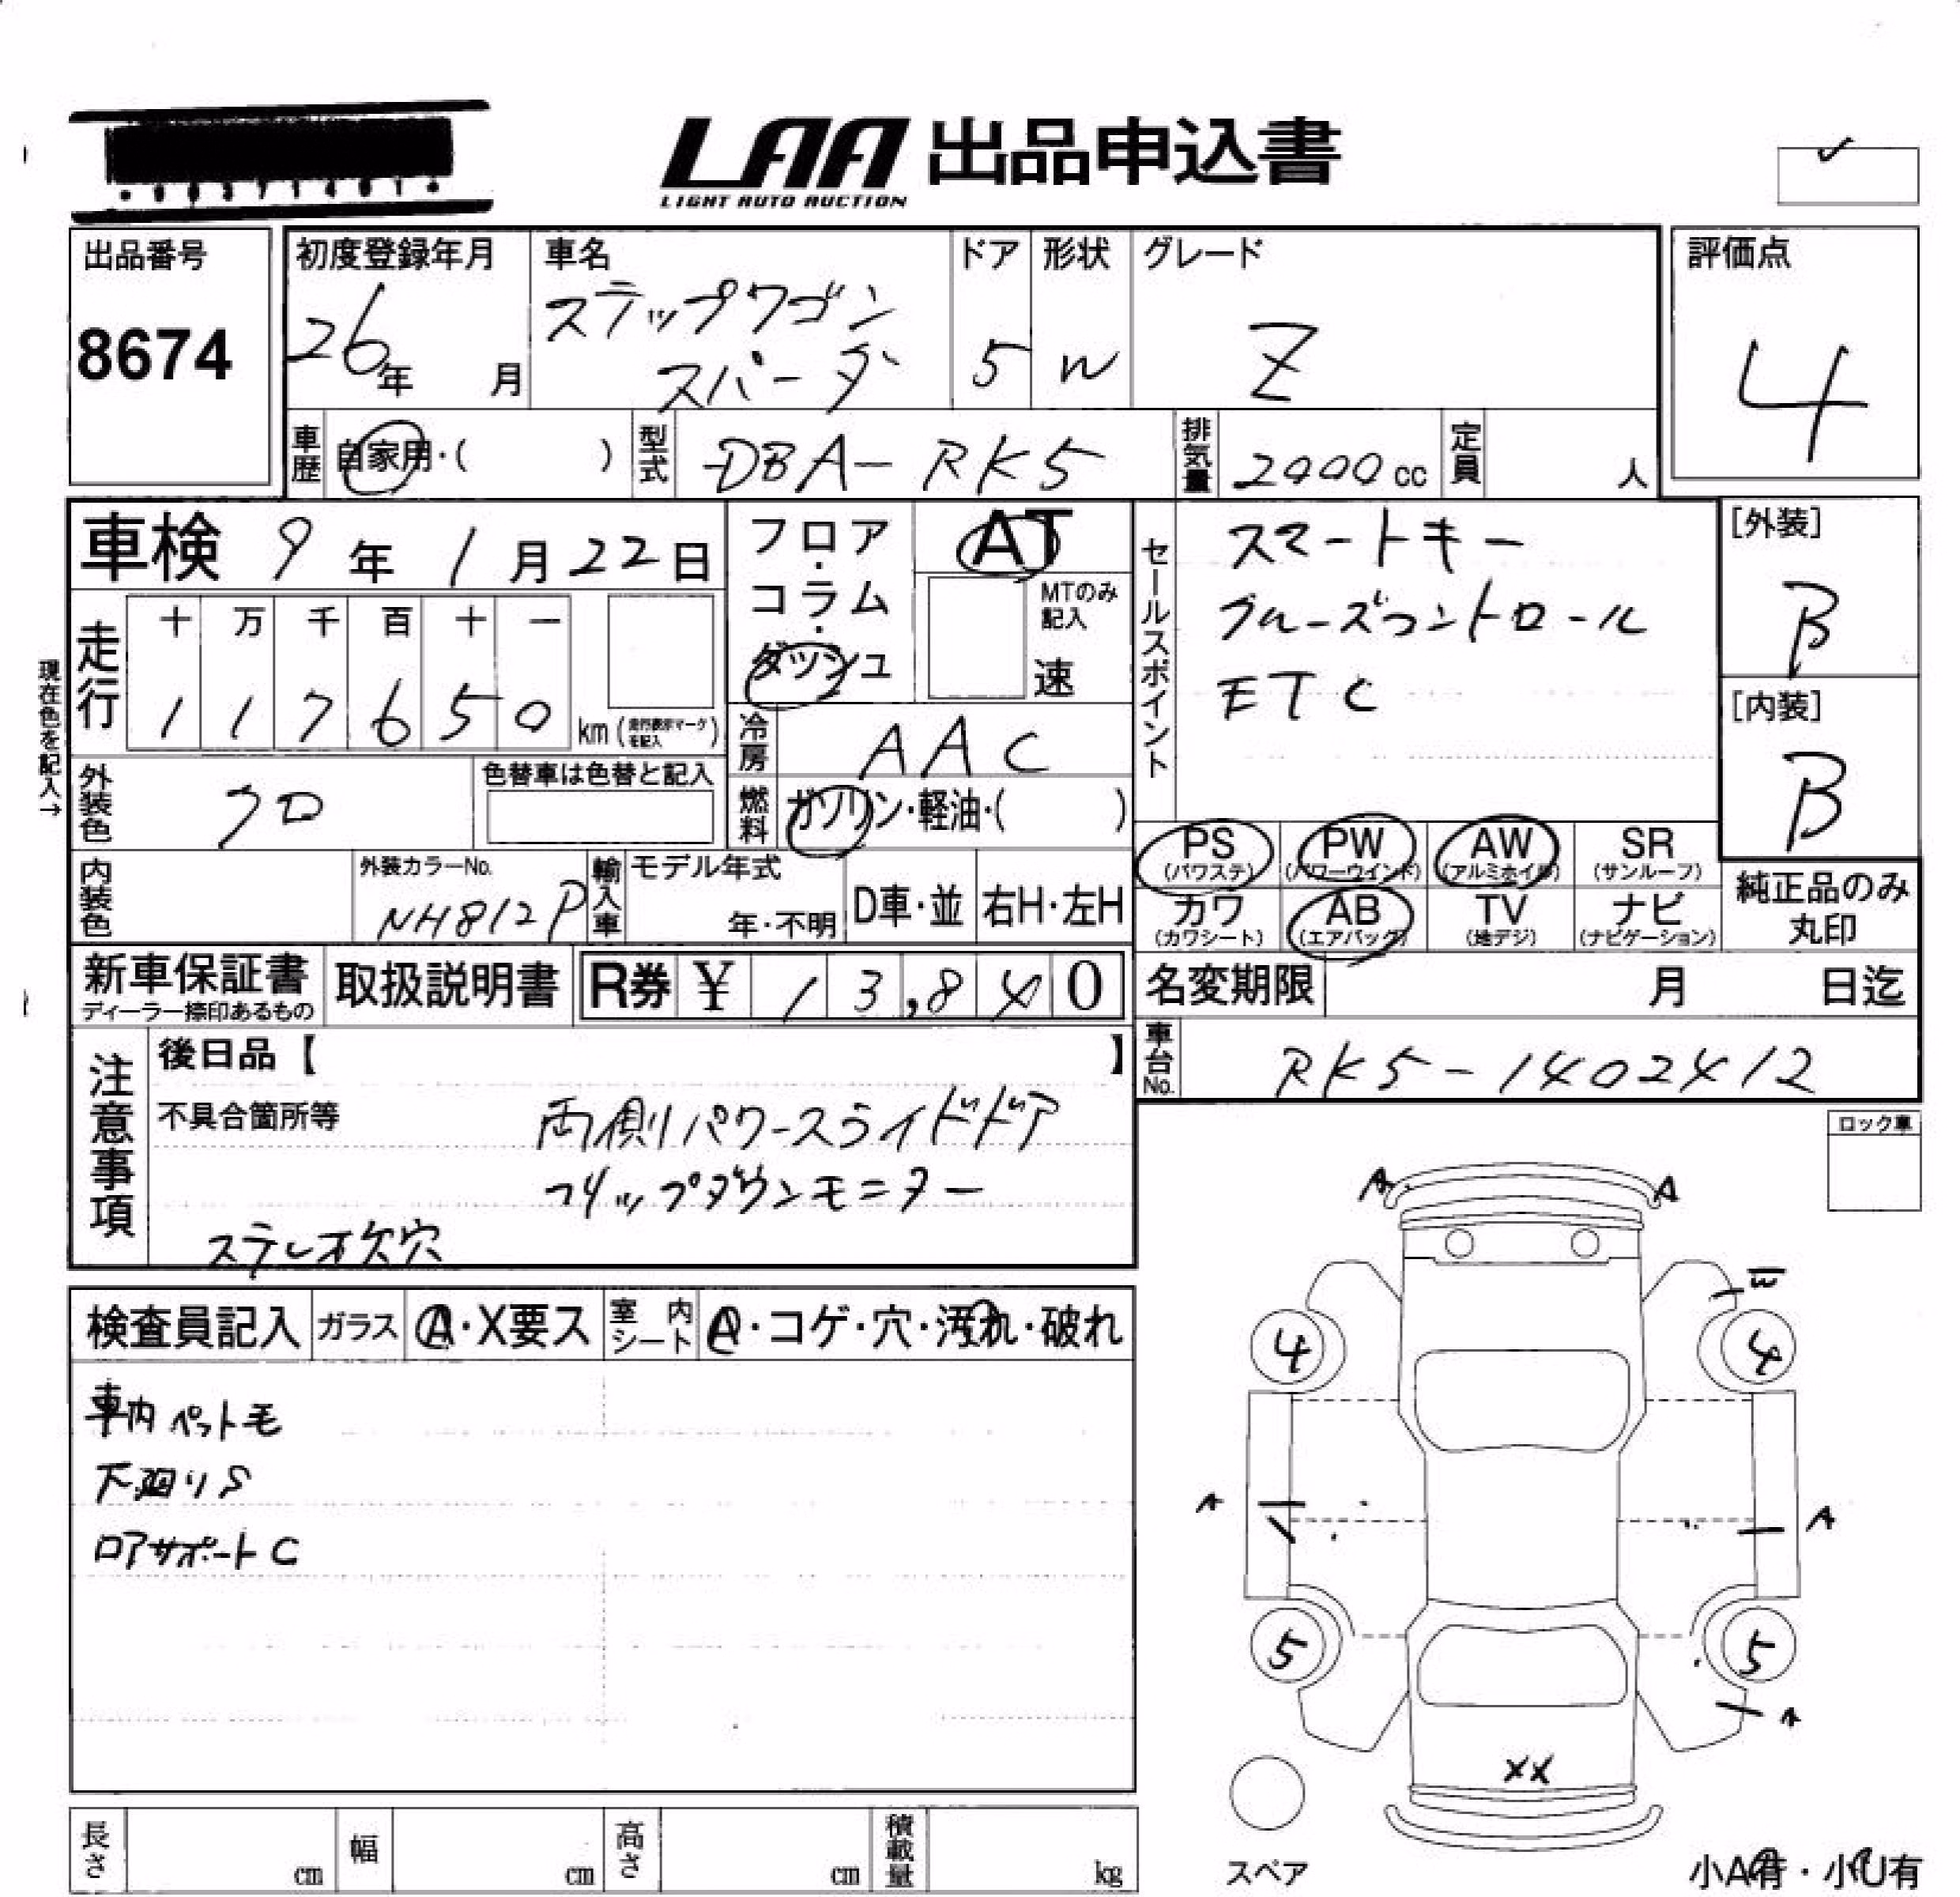 LAA 出品申込書
LIGHT AUTO AUCTION
出品番号
8674
初度登録年月
26年 月
車名
ステップワゴン
スパーダ
ドア
5
形状
W
グレード
Z
評価点
4
車歴 自家用・( )
型式 DBA-RK5
排気量 2000cc
定員 人
車検 9年 1月22日
走行
十 万 千 百 十 一
1 1 7 6 5 0 km (走行表示マークを記入)
現在色を記入→
外装色 クロ
色替車は色替と記入
内装色
外装カラーNo.
NH812P
輸入車
モデル年式
年・不明
D車・並
右H・左H
フロア・コラム・ダッシュ
AT
MTのみ記入
速
冷房 AAC
燃料 ガソリン・軽油・( )
セールスポイント
スマートキー
クルーズコントロール
ETC
[外装]
B
[内装]
B
PS (パワステ)
PW (パワーウインド)
AW (アルミホイル)
SR (サンルーフ)
カワ (カワシート)
AB (エアバック)
TV (地デジ)
ナビ (ナビゲーション)
純正品のみ
丸印
新車保証書
ディーラー捺印あるもの
取扱説明書
R券 ¥ 13,840
名変期限 月 日迄
車台No. RK5-1402412
注意事項
後日品【 】
不具合箇所等
両側パワースライドドア
フリップダウンモニター
ステレオ欠穴
ロック車
検査員記入
ガラス A・X要ス
室内シート A・コゲ・穴・汚れ・破れ
車内ペット毛
下廻りS
ロアサポートC
A A
W
4 4
A A
5 5
A
XX
スペア
小A有・小U有
長さ cm
幅 cm
高さ cm
積載量 kg